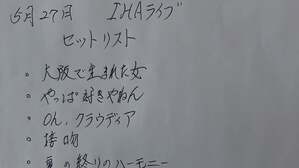 5月27日 IHAライブ
セットリスト
・大阪で生まれた女
・やっぱ好きやねん
・Oh, クラウディア
・接吻
・夏の終りのハーモニー